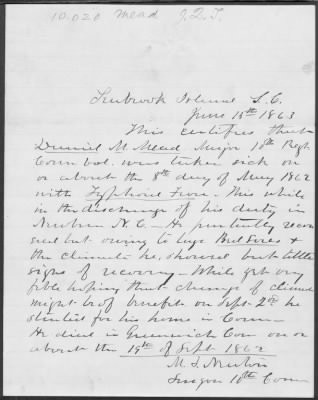 10.020 Mead J.D.T.
Seabrook Island S.C.
June 15th 1863
This certifies that
Daniel M Mead Major 10th Regt
Conn Vol. was taken sick on
or about the 8th day of May 1862
with Typhoid Fever. This while
in the discharge of his duty in
Newbern N.C. - He partially recov
ered but owing to large Bed Sores &
the climate he showed but little
signs of recovery. While yet very
feble hoping that change of climate
might be of benefit on Sept 2nd he
started for his home in Conn -
He died in Greenwich Con on or
about the 19th of Sept 1862
M. T. Newton
Surgeon 10th Conn